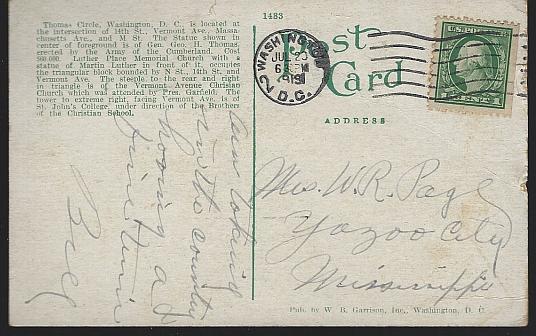 Thomas Circle, Washington, D. C. is located at
the intersection of 14th St., Vermont Ave., Massa-
chusetts Ave., and M St. The Statue shown in
center of foreground is of Gen. Geo. H. Thomas,
erected by the Army of the Cumberland. Cost
$60,000. Luther Place Memorial Church with a
statue of Martin Luther in front of it, occupies
the triangular block bounded by N St., 14th St. and
Vermont Ave. The steeple to the rear and right
in triangle is of the Vermont Avenue Christian
Church which was attended by Pres. Garfield. The
tower to extreme right, facing Vermont Ave., is of
St. John's College, under direction of the Brothers
of the Christian School.
1483
Post
Card
WASHINGTON
JUL 23
D.C.
ADDRESS
Mrs. W. R. Page
Yazoo City
Mississippi
in the country
having a
fine time
Bill
Pub. by W. B. Garrison, Inc., Washington, D. C.